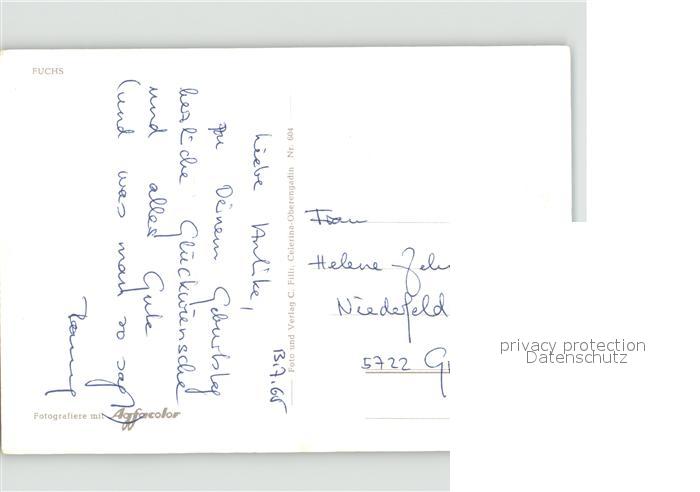 FUCHS
13.7.65
Liebe
zu Deinem Geburtstag
herzliche Glückwünsche
und alles Gute
(und was man so sagt)
Foto und Verlag C. Filli, Celerina-Oberengadin Nr. 604
Fotografiere mit Agfacolor
Frau
Helene
Niederfeld
5722 G
privacy protection
Datenschutz